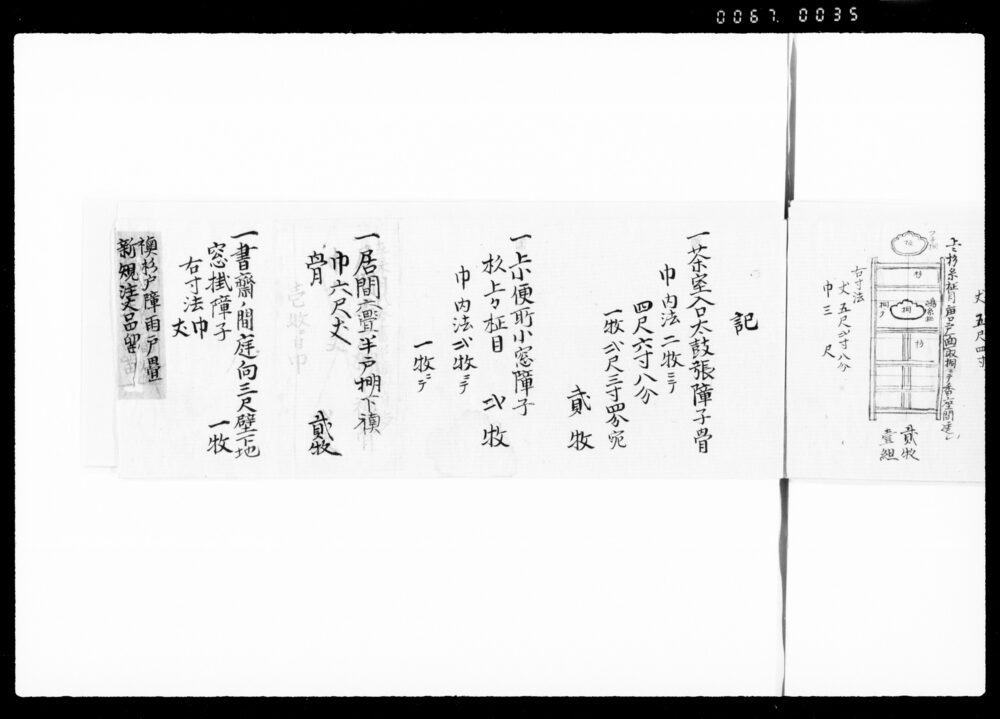 0067. 0035
丈五尺四寸
杉
桐
杉
右寸法
丈五尺弐寸八分
巾三尺
貳枚
壹組
記
一茶室入口太鼓張障子骨
巾内法二牧ニテ
四尺六寸八分
一牧弐尺三寸四分宛
貳牧
一上小便所小窓障子
杉上々柾目
弐牧
巾内法弐牧ニテ
一牧ニテ
一居間六疊半戸棚下襖
巾六尺丈
骨
貳牧
一書齋ノ間庭向三尺壁下地
窓掛障子
一牧
右寸法巾
丈
襖杉戸障雨戸疊
新規注文品留